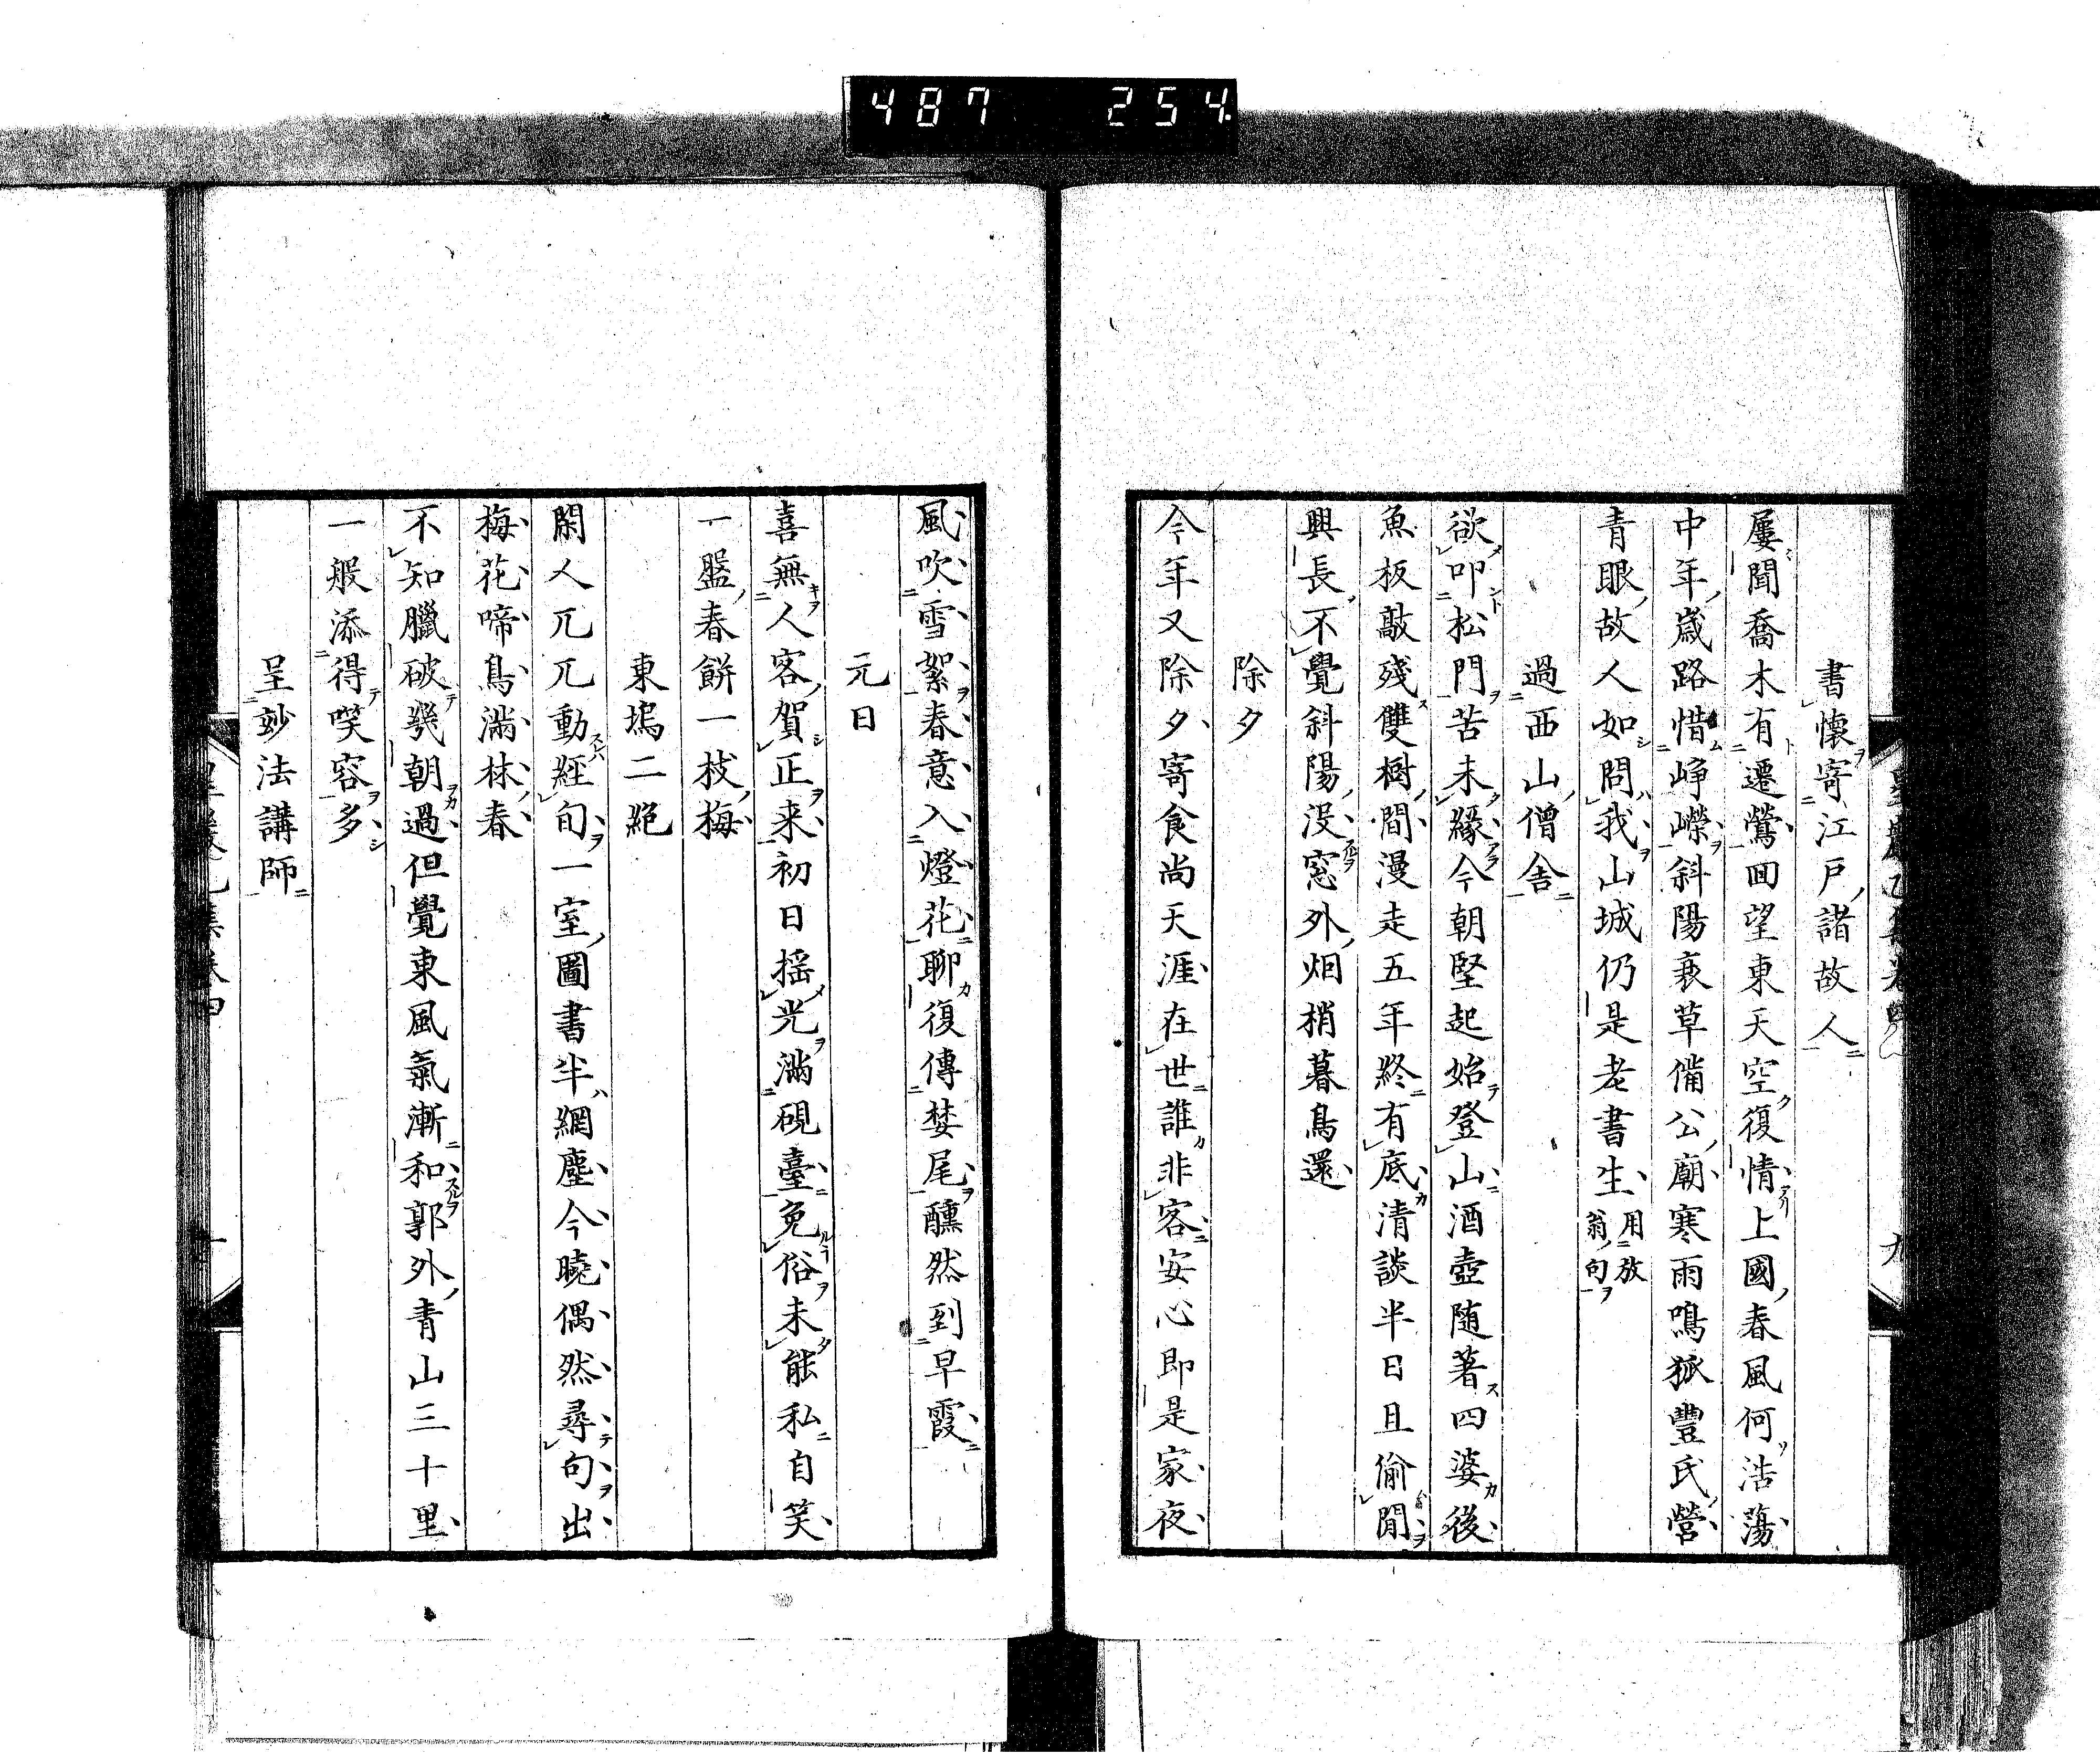 487 254
書懷寄江戸諸故人
屢聞喬木有遷鶯回望東天空復情上國春風何浩蕩
中年歲路惜崢嶸斜陽衰草備公廟寒雨鳴狐豐氏營
青眼故人如問我山城仍是老書生用放翁句
過西山僧舎
欲叩松門苦未緣今朝堅起始登山酒壺随著四婆後
魚板敲殘雙樹間漫走五年終有底清談半日且偷閒
興長不覺斜陽没窓外烟梢暮鳥還
除夕
今年又除夕寄食尚天涯在世誰非客安心即是家夜
風吹雪絮春意入燈花聊復傳婪尾醺然到早霞
元日
喜無人客賀正来初日揺光滿硯臺免俗未能私自笑
一盤春餅一枝梅
東塢二絶
閑人兀兀動經旬一室圖書半網塵今曉偶然尋句出
梅花啼鳥滿林春
不知臘破幾朝過但覺東風氣漸和郭外青山三十里
一般添得咲容多
呈妙法講師